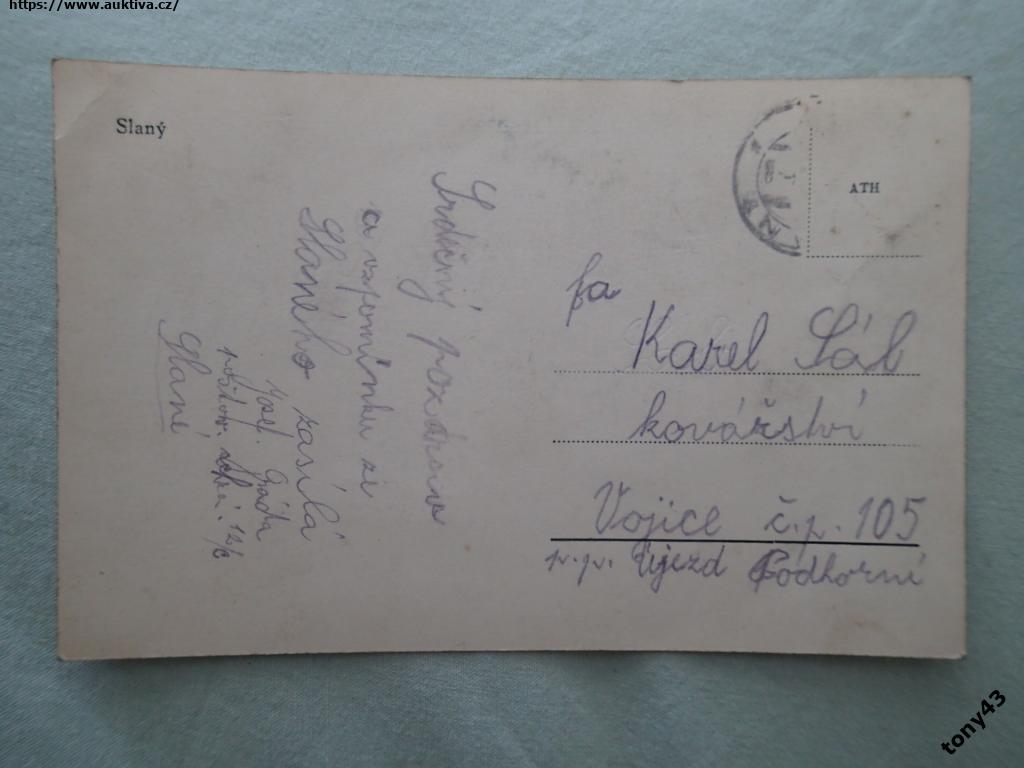 https://www.auktiva.cz/
Slaný
ATH
Srdečný pozdrav
a vzpomínku ze
Slaného zasílá
Josef
Slané
fa
Karel Sál
kovářství
Vojice č.p. 105
p.p. Újezd Podhorní
tony43